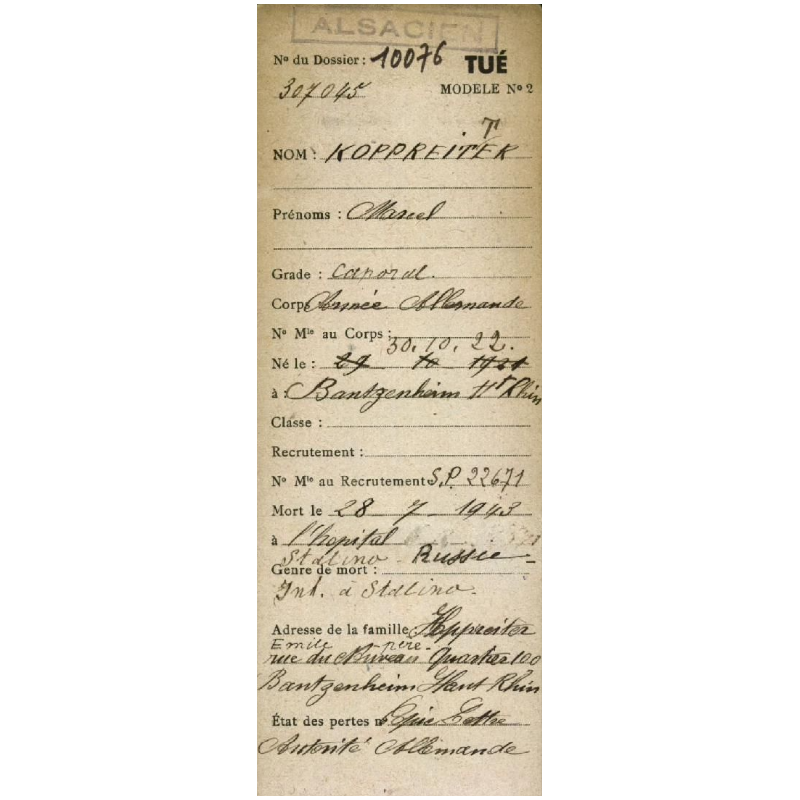 ALSACIEN
No du Dossier : 10076 TUÉ
307045 MODELE No 2
T
NOM : KOPPREITER
Prénoms : Marcel
Grade : Caporal.
Corps Armée Allemande
No Mle au Corps :
30.10.22.
Né le : 29 10 1921
à : Bantzenheim Ht Rhin
Classe :
Recrutement :
No Mle au Recrutement S.P. 22671
Mort le 28 7 1943
à l'hopital
Stalino Russie
Genre de mort :
Inh. à Stalino.
Adresse de la famille Koppreiter
Emile père
rue du Bureau Quartier 100
Bantzenheim Haut Rhin
État des pertes n Copie Lettre
Autorité Allemande